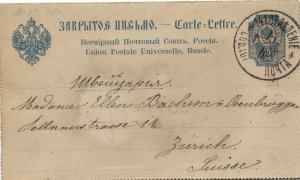 ЗАКРЫТОЕ ПИСЬМО. — Carte-Lettre.
Всемірный Почтовый Союзъ. Россія.
Union Postale Universelle. Russie.
Швейцарія.
Madame Ellen Bachem
Sellnaustrasse 14
Zürich
Suisse
ПОЧТА